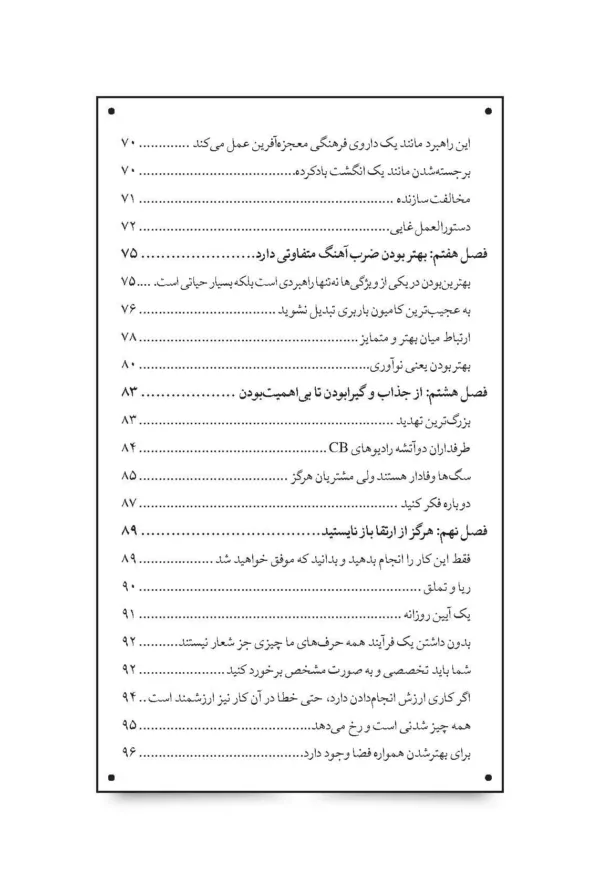 این راهبرد مانند یک داروی فرهنگی معجزه‌آفرین عمل می‌کند ............. ۷۰
برجسته‌شدن مانند یک انگشت بادکرده ........................................ ۷۰
مخالفت سازنده ................................................................. ۷۱
دستورالعمل غایی ................................................................ ۷۲
فصل هفتم: بهتر بودن ضرب‌آهنگ متفاوتی دارد ....................... ۷۵
بهترین‌بودن در یکی از ویژگی‌ها نه‌تنها راهبردی است بلکه بسیار حیاتی است. .... ۷۵
به عجیب‌ترین کامیون باربری تبدیل نشوید ................................... ۷۶
ارتباط میان بهتر و متمایز ........................................................ ۷۸
بهتر بودن یعنی نوآوری ........................................................... ۸۰
فصل هشتم: از جذاب و گیرابودن تا بی‌اهمیت‌بودن ................... ۸۳
بزرگ‌ترین تهدید ................................................................. ۸۳
طرفداران دوآتشه رادیوهای CB ................................................ ۸۴
سگ‌ها وفادار هستند ولی مشتریان هرگز ...................................... ۸۵
دوباره فکر کنید .................................................................. ۸۷
فصل نهم: هرگز از ارتقا باز نایستید .................................... ۸۹
فقط این کار را انجام بدهید و بدانید که موفق خواهید شد ................... ۸۹
ریا و تملق ........................................................................ ۹۰
یک آیین روزانه ................................................................... ۹۱
بدون داشتن یک فرآیند همه حرف‌های ما چیزی جز شعار نیستند .......... ۹۲
شما باید تخصصی و به صورت مشخص برخورد کنید ...................... ۹۲
اگر کاری ارزش انجام‌دادن دارد، حتی خطا در آن کار نیز ارزشمند است .. ۹۴
همه چیز شدنی است و رخ می‌دهد ............................................ ۹۵
برای بهترشدن همواره فضا وجود دارد ......................................... ۹۶